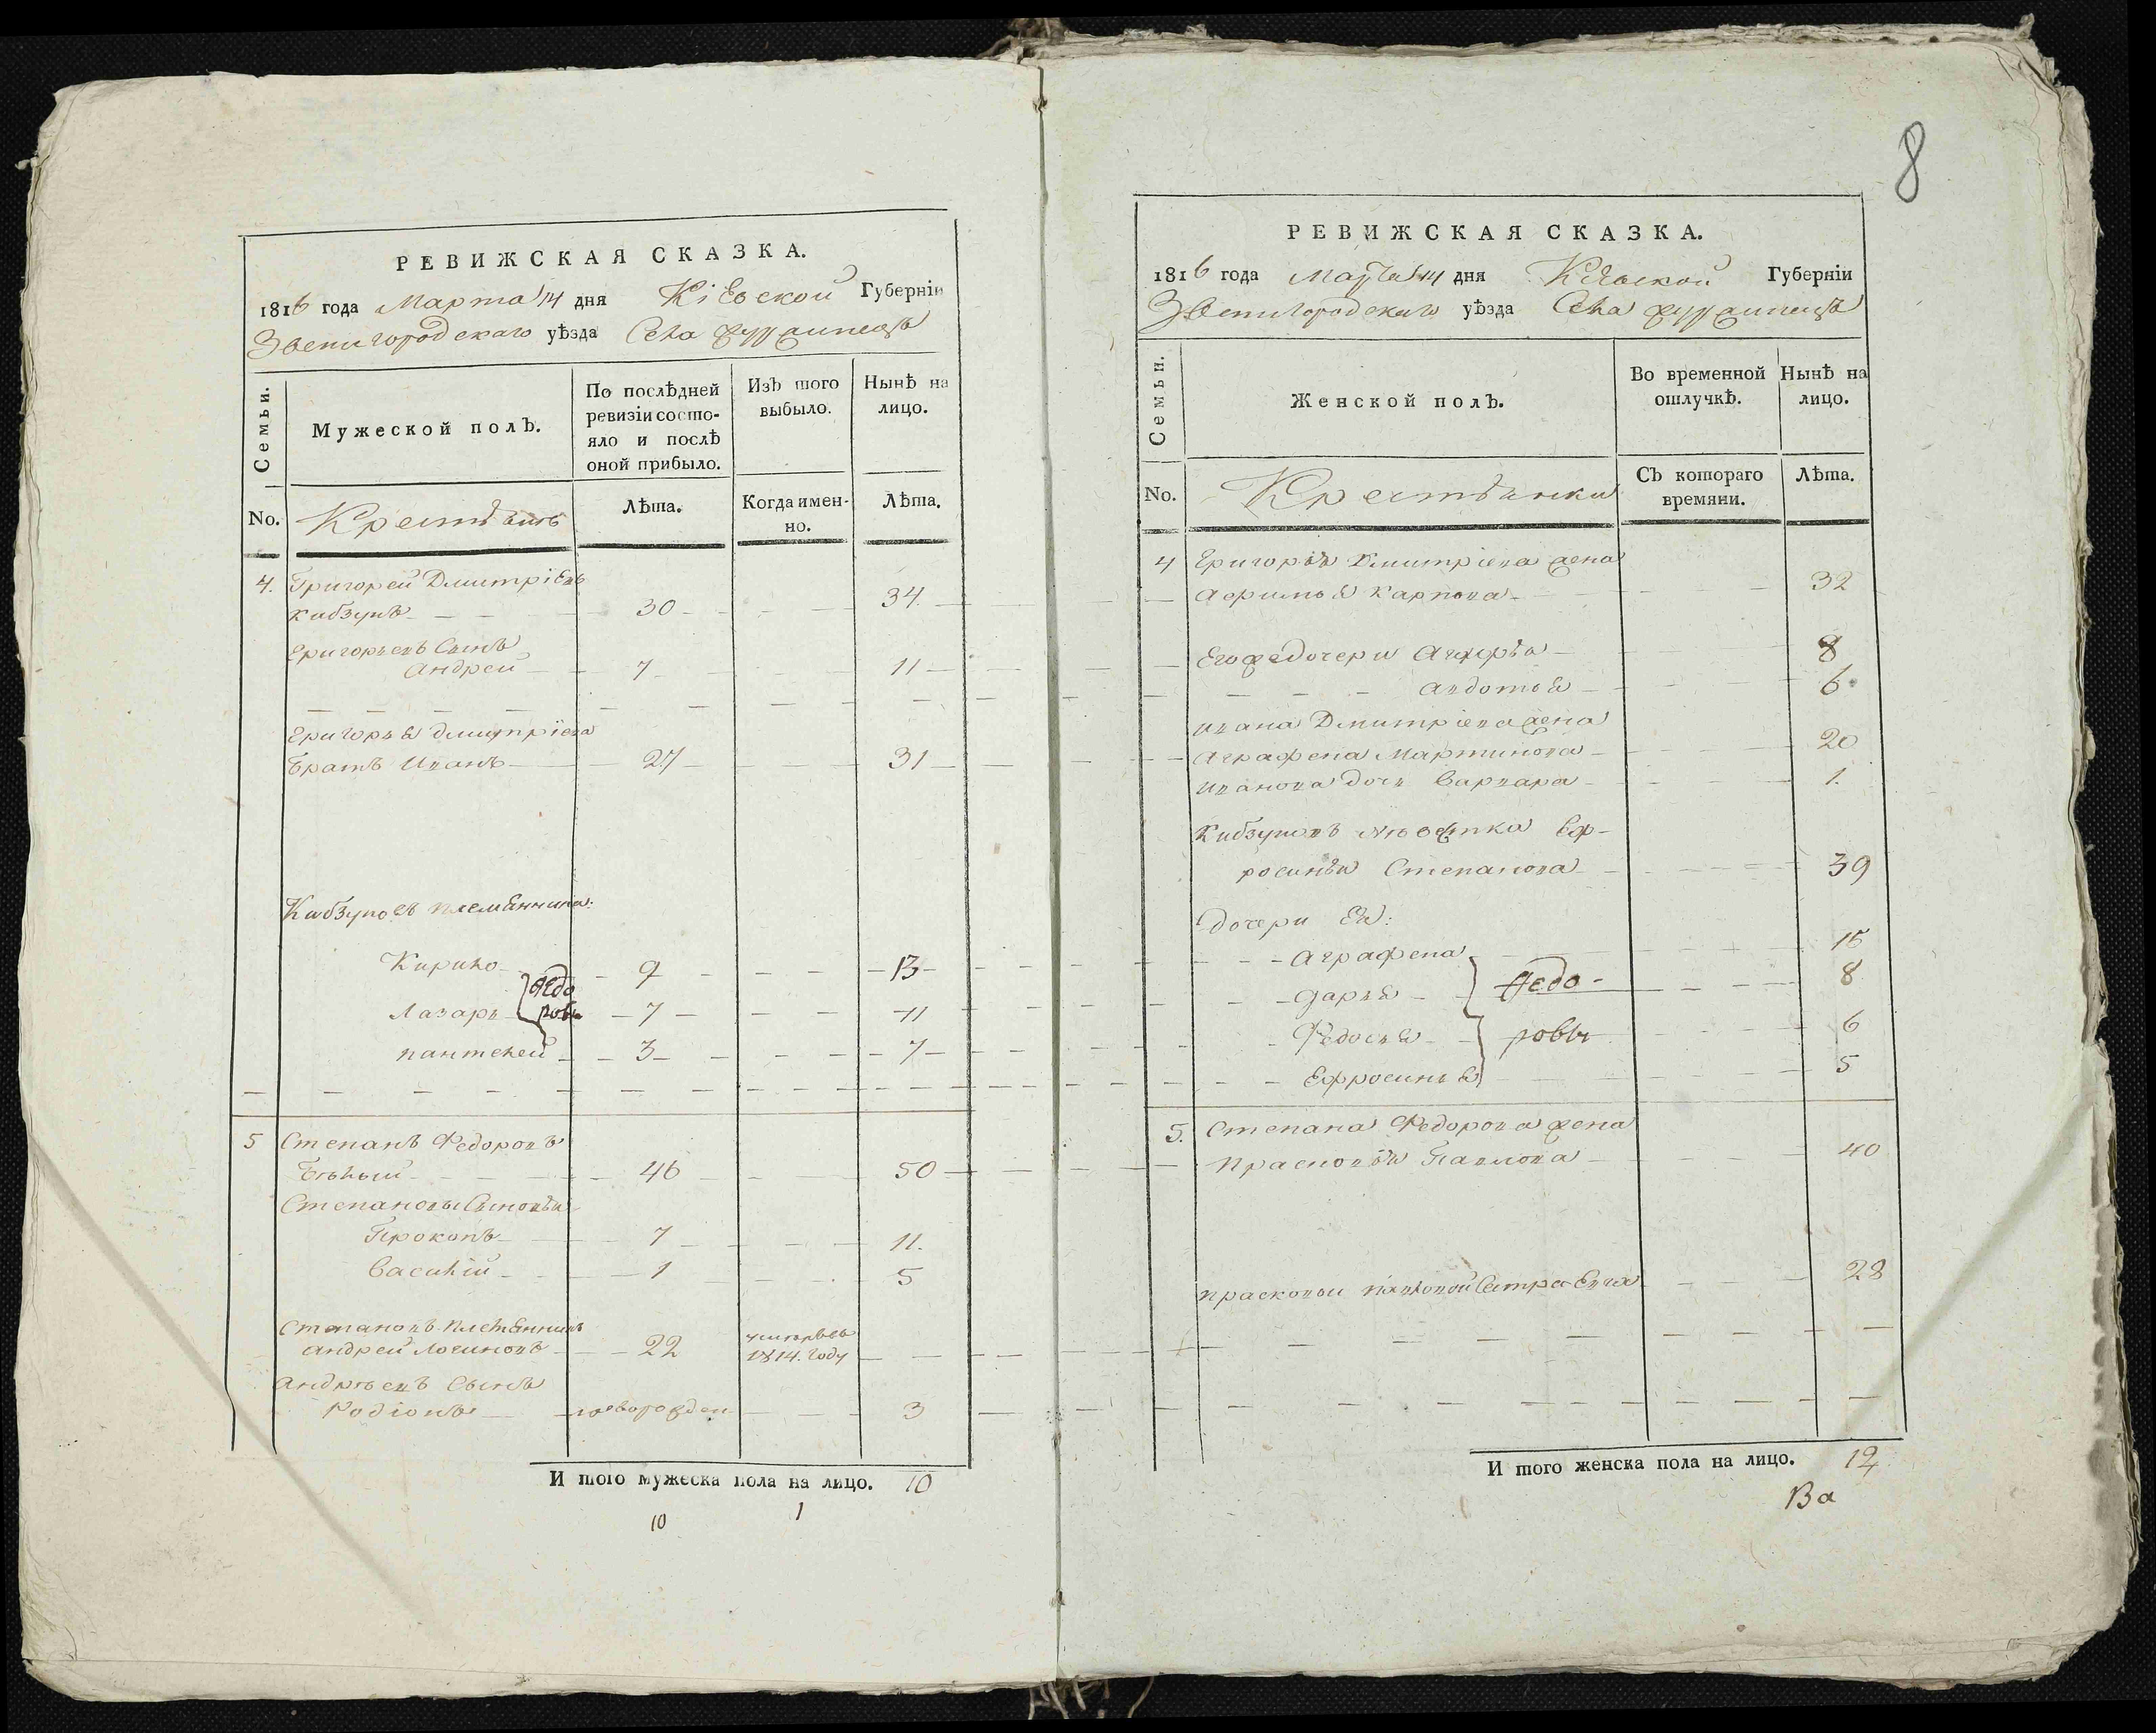 РЕВИЖСКАЯ СКАЗКА.
1816 года Марта 14 дня Кіевской Губерніи
Звенигородскаго уѣзда Села
Семьи.
Мужеской полъ.
По послѣдней ревизіи состояло и послѣ оной прибыло.
Изъ того выбыло.
Нынѣ на лицо.
No.
Крестьянъ
Лѣта.
Когда именно.
Лѣта.
4. Григорей Дмитріевъ
Кибзунъ 30 34
Григорьевъ Сынъ
Андрей 7 11
Григорья Дмитріева
Братъ Иванъ 27 31
Кибзуновъ племянника:
Кирило 9 13
Федо
Лазарь 7 11
ровы
пантелей 3 7
5 Степанъ Федоровъ
Бѣлый 46 50
Степановы Сыновьи
Прокопъ 7 11.
Василій 1 5
Степановъ племянникъ
Андрей Логиновъ 22 умпръ въ 1814. году
Андрѣевъ Сынъ
Родіонъ новорожден 3
И того мужеска пола на лицо. 10
10 1
8
РЕВИЖСКАЯ СКАЗКА.
1816 года Марта 14 дня Кіевской Губерніи
Звенигородскаго уѣзда Села
Семьи.
Женской полъ.
Во временной отлучкѣ.
Нынѣ на лицо.
No.
Крестьянки
Съ котораго времяни.
Лѣта.
4 Григорія Дмитріева жена
Афимья Карпова 32
Егоже дочери 8
Авдотья 6
Ивана Дмитріева жена
Аграфена Мартинова 20
Иванова дочь Варвара 1.
Кибзуновъ Ев-
росинья Степанова 39
дочери Ея:
Аграфена 15
дарья Федо- 8
Федосья ровы 6
Ефросинья 5
5. Степана Федорова жена
Прасковья Павлова 40
прасковьи павловой Сестра Евга 28
И того женска пола на лицо. 12